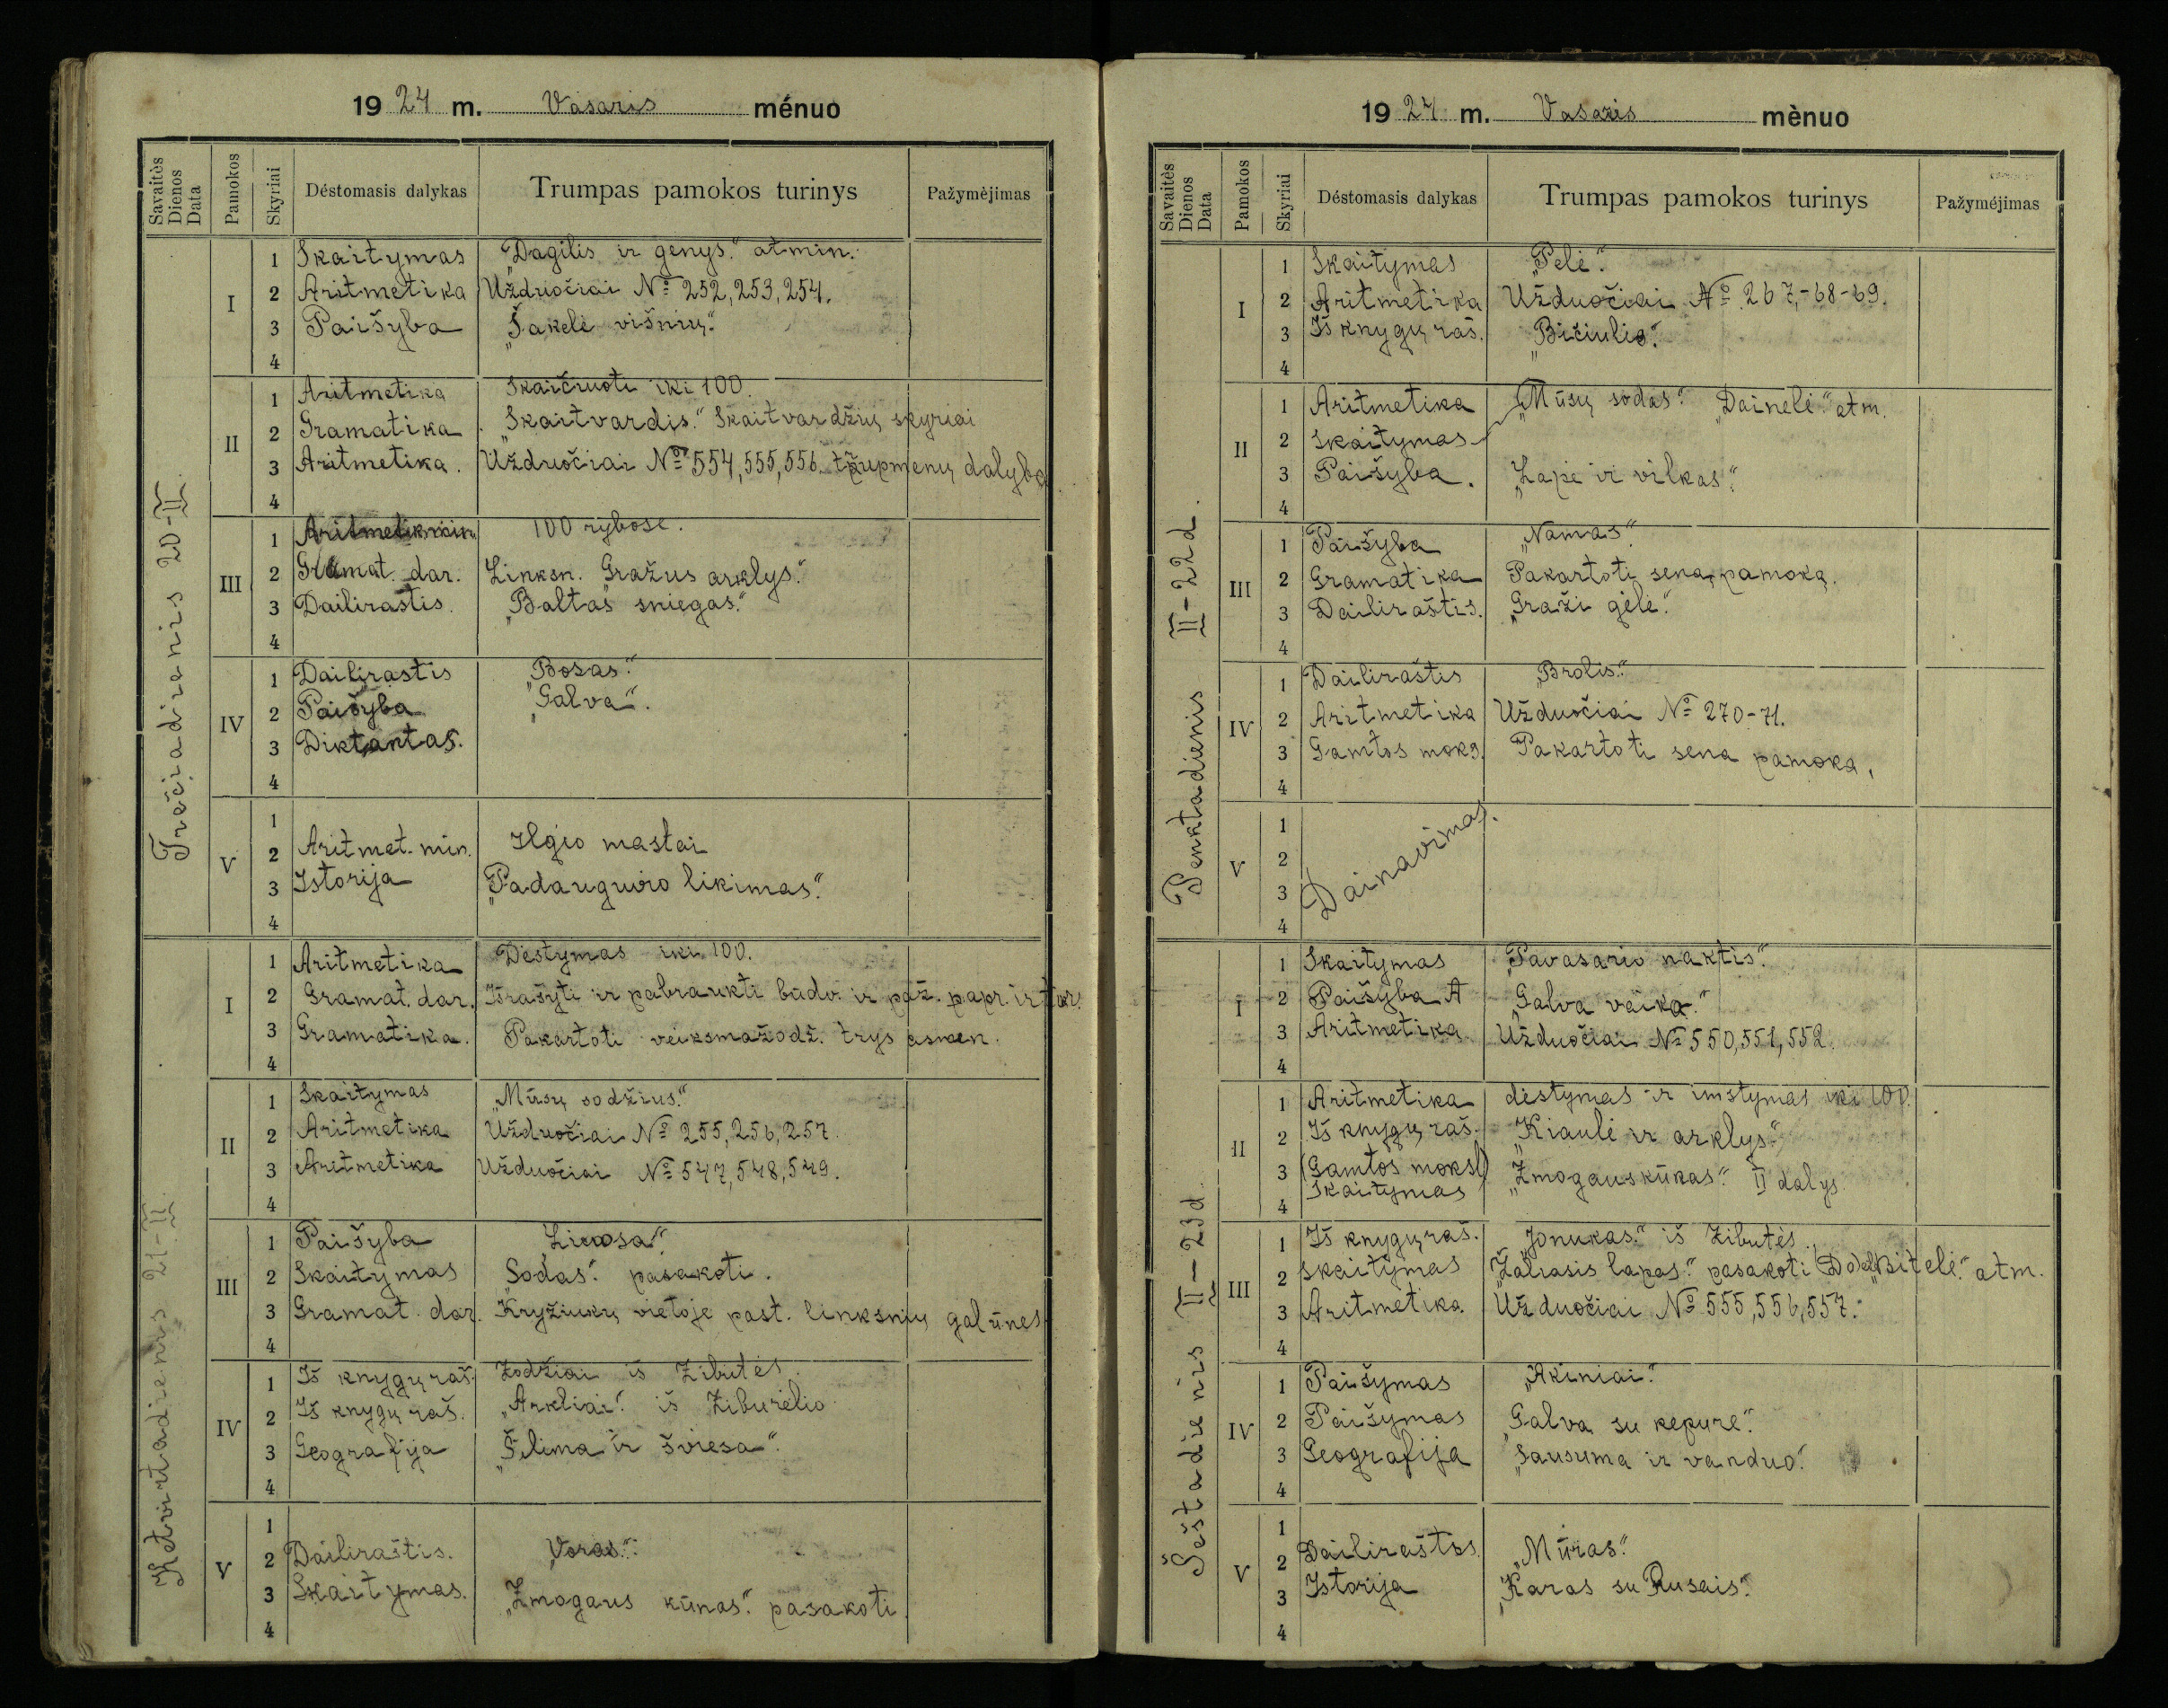 1924 m. Vasaris ménuo
Savaitės Dienos Data Pamokos Skyriai Déstomasis dalykas Trumpas pamokos turinys Pažymėjimas
Trečiadienis 20-II.
I
1 Skaitymas „Dagilis ir genys." atmin.
2 Aritmetika Užduočiai № 252, 253, 254.
3 Paišyba „Šakelė višnių."
4
II
1 Aritmetika Skaičiuoti iki 100.
2 Gramatika „Skaitvardis." Skaitvardžių skyriai
3 Aritmetika. Užduočiai № 554, 555, 556. trupmenų dalyba
4
III
1 100 rybose.
2 Gramat. dar. Linksn. „Gražus arklys."
3 Dailirastis. „Baltas sniegas."
4
IV
1 Dailirastis „Bosas."
2 Paišyba „Galva".
3 Diktantas.
4
V
1
2 Aritmet. min. Ilgio mastai
3 Istorija „Padauguvio likimas."
4
Ketvirtadienis 21-II.
I
1 Aritmetika Dėstymas iki 100.
2 Gramat. dar. Išrašyti ir pabraukti būdv. ir paž. papr. ir
3 Gramatika. Pakartoti veiksmažodž. trys asmen.
4
II
1 Skaitymas „Mūsų sodžius."
2 Aritmetika Užduočiai № 255, 256, 257.
3 Aritmetika Užduočiai № 547, 548, 549.
4
III
1 Paišyba
2 Skaitymas „Sodas." pasakoti.
3 Gramat. dar. Kryžiukų vietoje past. linksnių galūnes
4
IV
1 Iš knygų raš. Žodžiai iš Žibutės.
2 Iš knygų raš. „Arkliai." iš Žiburėlio
3 Geografija „Šilima ir šviesa".
4
V
1
2 Dailiraštis. „Voras."
3 Skaitymas. „Žmogaus kūnas." pasakoti
4
1924 m. Vasaris mènuo
Savaitės Dienos Data Pamokos Skyriai Déstomasis dalykas Trumpas pamokos turinys Pažyméjimas
Penktadienis II-22 d.
I
1 Skaitymas „Pelė."
2 Aritmetika Užduočiai № 267,-68-69.
3 Iš knygų raš. „Bičiulis."
4
II
1 Aritmetika „Mūsų sodas." „Dainelė." atm.
2 Skaitymas
3 Paišyba. „Lapė ir vilkas."
4
III
1 Paišyba „Namas."
2 Gramatika Pakartoti seną pamoką.
3 Dailiraštis. „Graži gėlė."
4
IV
1 Dailiraštis „Brolis."
2 Aritmetika Užduočiai № 270-71.
3 Gamtos moks. Pakartoti sena pamoka,
4
V
1
2
3
4
Dainavimas.
Šeštadienis II-23 d.
I
1 Skaitymas „Pavasario naktis."
2 Paišyba „Galva vaiko."
3 Aritmetika Užduočiai № 550, 551, 552.
4
II
1 Aritmetika dėstymas ir imstymas iki 100.
2 Iš knygų raš. „Kiaulė ir arklys."
3 (Gamtos moksl) „Žmogaus kūnas." II dalys.
4 Skaitymas
III
1 Iš knygų raš. „Jonukas." iš Žibutės.
2 Skaitymas „Žaliasis lapas." pasakoti „Bitelė." atm.
3 Aritmetika Užduočiai № 555, 556, 557.
4
IV
1 Paišymas „Akiniai."
2 Paišymas „Galva su kepure."
3 Geografija „Sausuma ir vanduo."
4
V
1
2 Dailiraštis. „Mūras."
3 Istorija „Karas su Rusais."
4